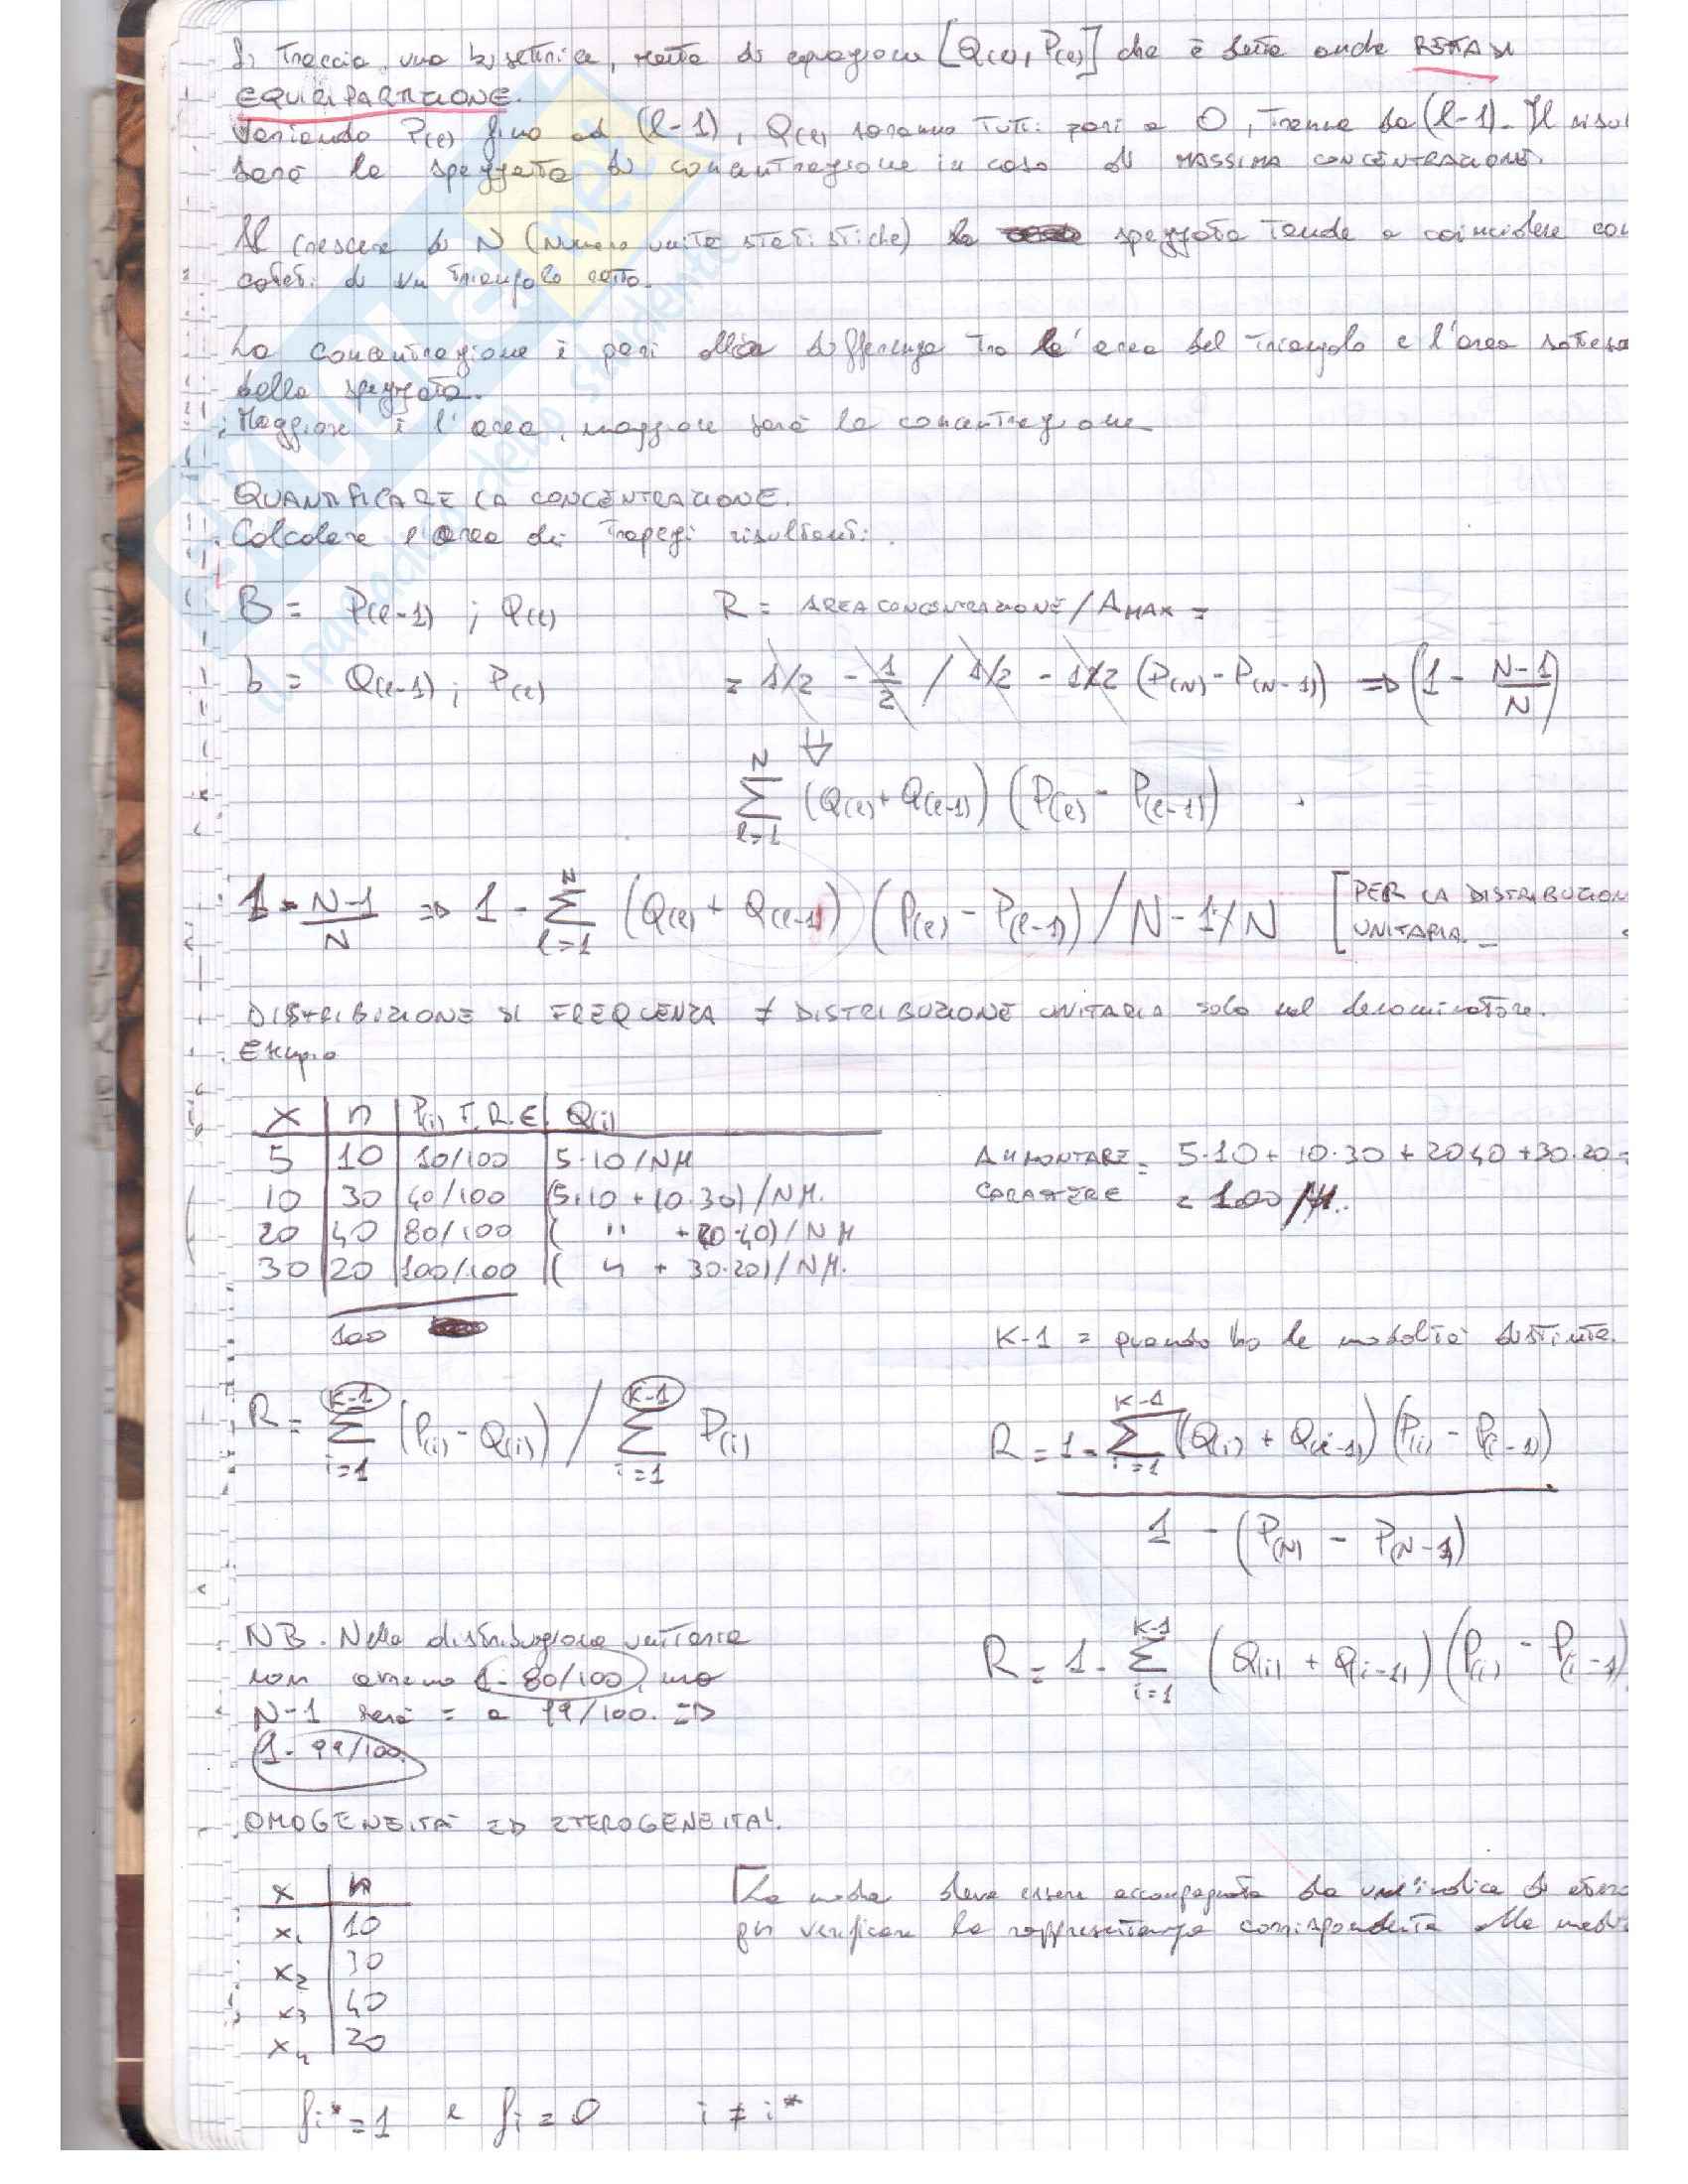 Si Traccia una bisettrice, retta di equazione [Q(e), P(e)] che è detta anche RETTA DI
EQUIRIPARTIZIONE.
Variando P(e) fino ad (e-1), Q(e) saranno Tutti pari a 0, Tranne da (e-1). Il
sarà la spezzata di concentrazione in caso di MASSIMA CONCENTRAZIONE.
Al crescere di N (Numero unità statistiche) la spezzata Tende a coincidere con
cateti di un Triangolo retto.
La concentrazione è pari alla differenza Tra l'area del Triangolo e l'area
della spezzata.
Maggiore è l'area, maggiore sarà la concentrazione
QUANTIFICARE LA CONCENTRAZIONE.
Calcolare l'area dei Trapezi risultanti.
B = P(e-1) ; Q(e)
R = AREA CONCENTRAZIONE / A MAX =
b = Q(e-1) ; P(e)
= 1/2 - 1/2 / 1/2 - 1/2 (P(N) - P(N-1)) => (1 - N-1/N)
N Σ e=1 (Q(e) + Q(e-1)) (P(e) - P(e-1))
1 - N-1/N => 1 - N Σ e=1 (Q(e) + Q(e-1)) (P(e) - P(e-1)) / N-1/N
[PER LA DISTRIBUZION
UNITARIA.
DISTRIBUZIONE DI FREQUENZA ≠ DISTRIBUZIONE UNITARIA solo nel denominatore.
Esempio
X | n | P(i) T.R.E. | Q(i)
5 | 10 | 10/100 | 5·10/NM
10 | 30 | 40/100 | (5·10 + 10·30)/NM.
20 | 40 | 80/100 | ( " + 20·40)/NM
30 | 20 | 100/100 | ( " + 30·20)/NM.
100
AMMONTARE = 5·10 + 10·30 + 20·40 + 30·20 =
CARATTERE
K-1 = quando ho le modalità distinte.
R = K-1 Σ i=1 (P(i) - Q(i)) / K-1 Σ i=1 P(i)
R = 1 - K-1 Σ i=1 (Q(i) + Q(i-1)) (P(i) - P(i-1))
1 - (P(N) - P(N-1))
NB. Nella distribuzione unitaria
non avremo 1 - 80/100, ma
N-1 sarà = a 99/100. =>
1 - 99/100.
R = 1 - K-1 Σ i=1 (Q(i) + Q(i-1)) (P(i) - P(i-1)
OMOGENEITA' => ETEROGENEITA'.
x | n
x1 | 10
x2 | 30
x3 | 40
x4 | 20
[La moda deve essere accompagnata da un'indice di
per verificare la rappresentanza corrispondente alla
fi* = 1 e fi = 0 i ≠ i*